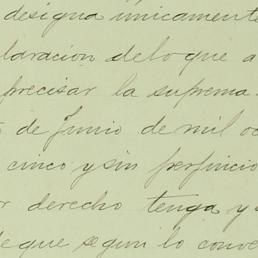 designa únicamente
laracion de lo que a
precisar la suprema
de Junio de mil oc
cinco y sin perfuicio
r derecho tenga y
de que segun lo conve